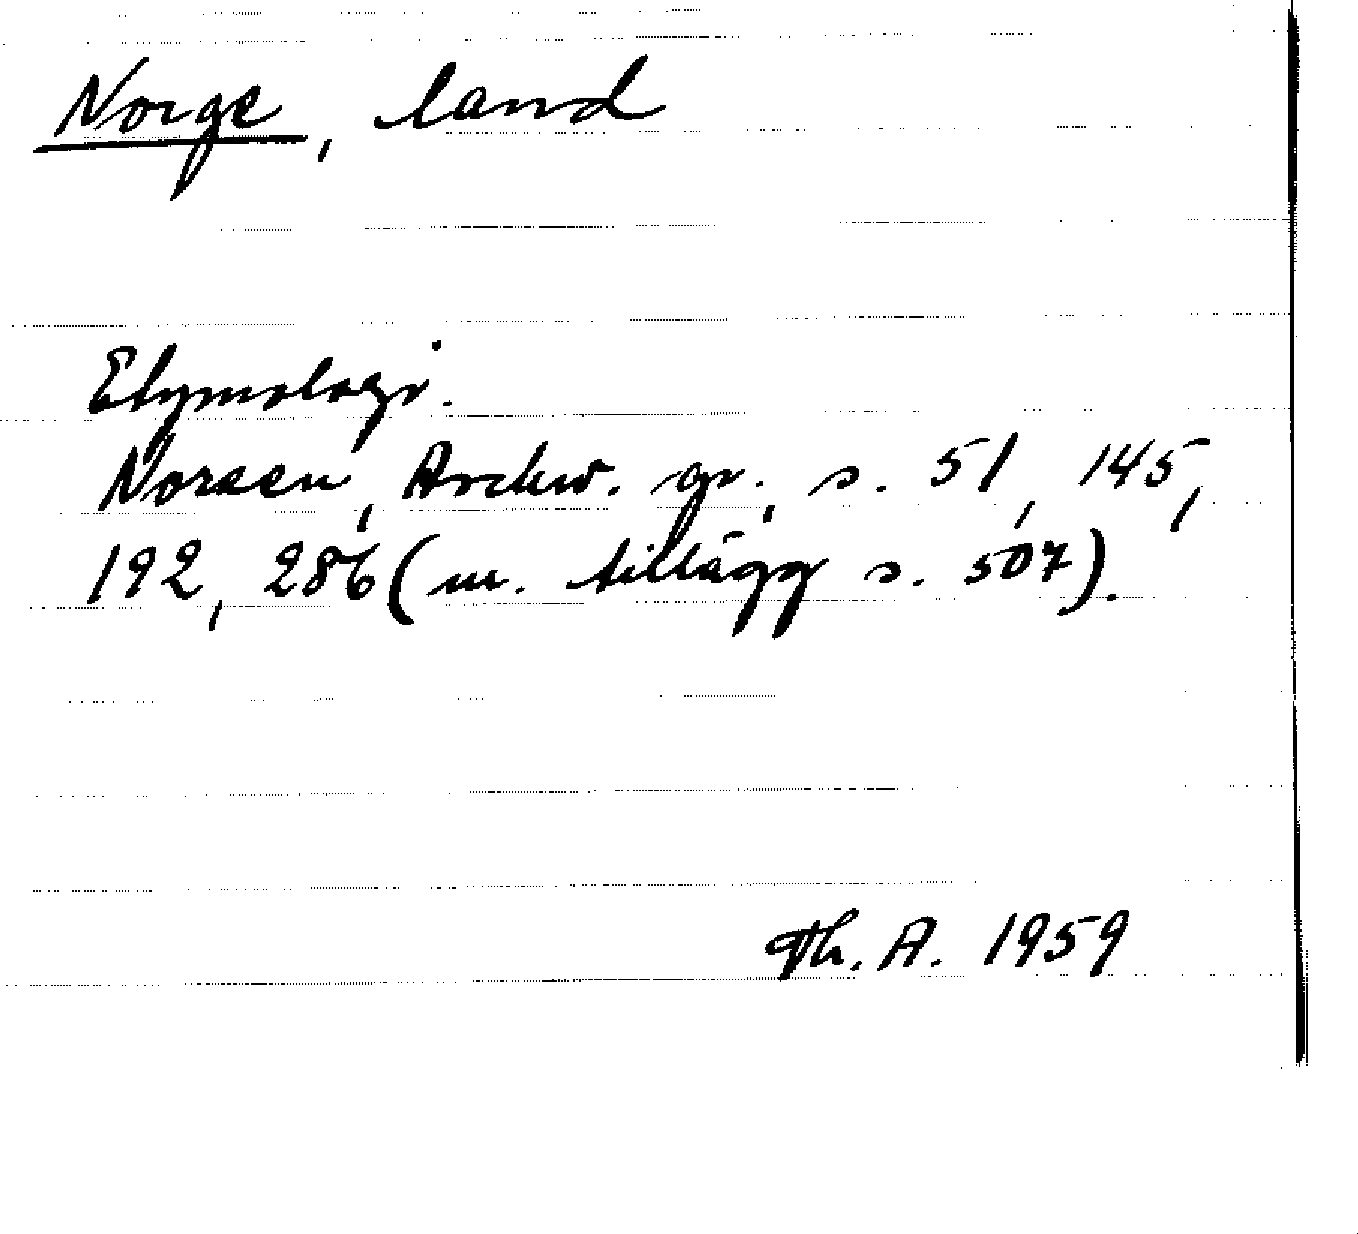 Norge, land
Etymologi.
Noreen, Aschw. gr., s. 51, 145,
192, 286 (m. tillägg s. 507).
Th. A. 1959